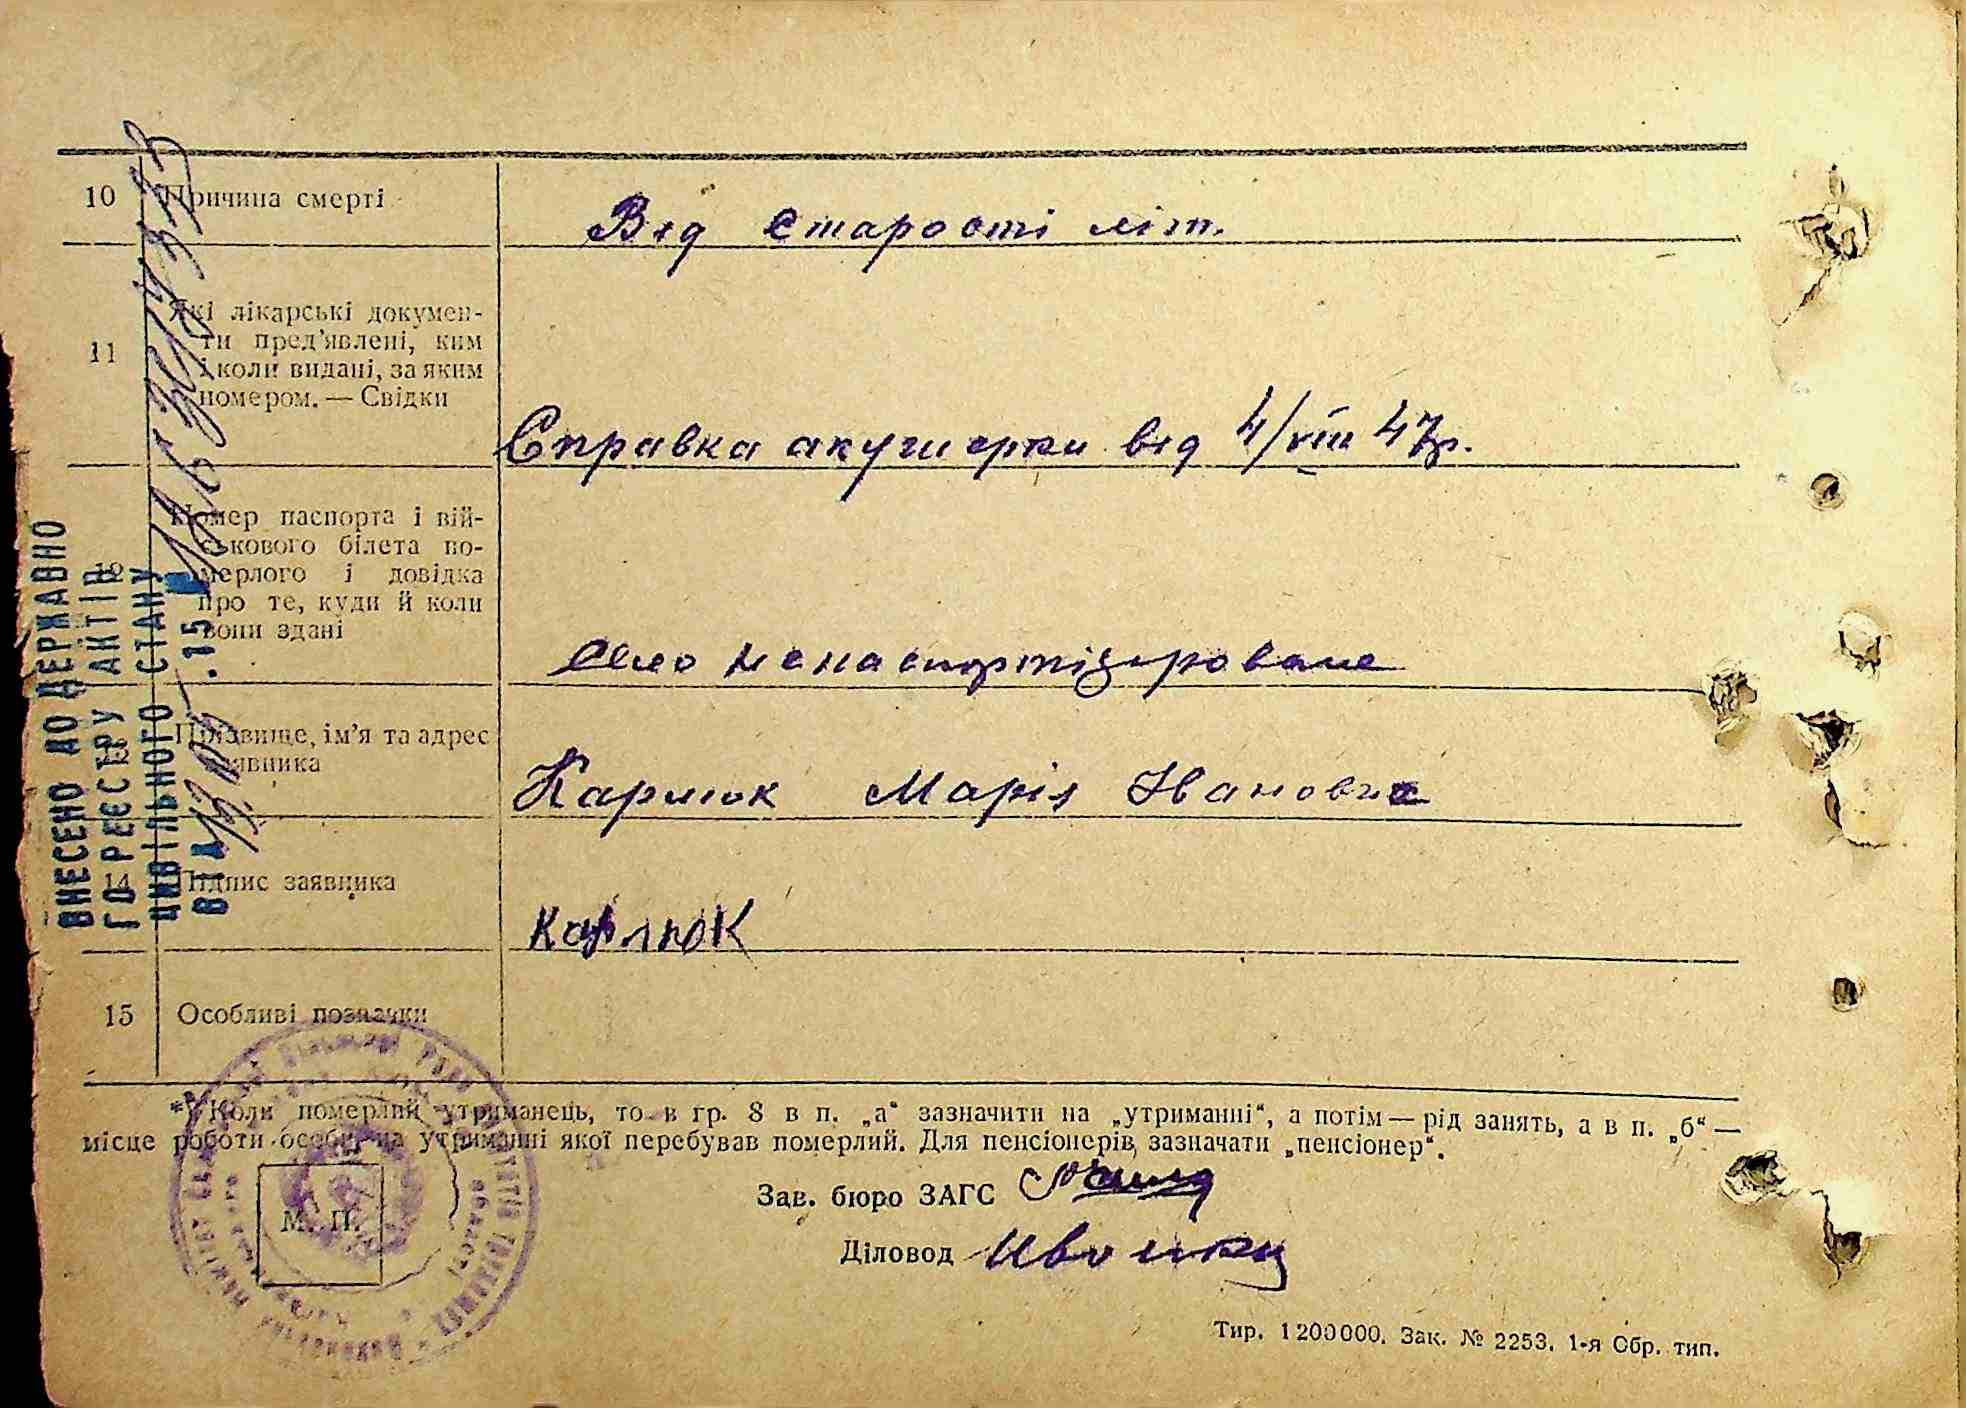 10 Причина смерті
Від старості літ.
11 Які лікарські докумен-
ти пред'явлені, ким
і коли видані, за яким
номером. — Свідки
Справка акушерки від 4/VIII 47р.
12 Номер паспорта і вій-
ськового білета по-
мерлого і довідка
про те, куди й коли
вони здані
Село непаспортізіроване
13 Прізвище, ім'я та адрес
заявника
Карлюк Марія Івановна
14 Підпис заявника
Карлюк
15 Особливі позначки
*) Коли померлий утриманець, то в гр. 8 в п. „а“ зазначити на „утриманні“, а потім — рід занять, а в п. „б“ —
місце роботи особи, на утриманні якої перебував померлий. Для пенсіонерів, зазначати „пенсіонер“.
М. П.
Зав. бюро ЗАГС
Діловод
Тир. 1200000. Зак. № 2253. 1-я Обр. тип.
ВНЕСЕНО ДО ДЕРЖАВНО
ГО РЕЄСТРУ АКТІВ
ЦИВІЛЬНОГО СТАНУ
ВІД